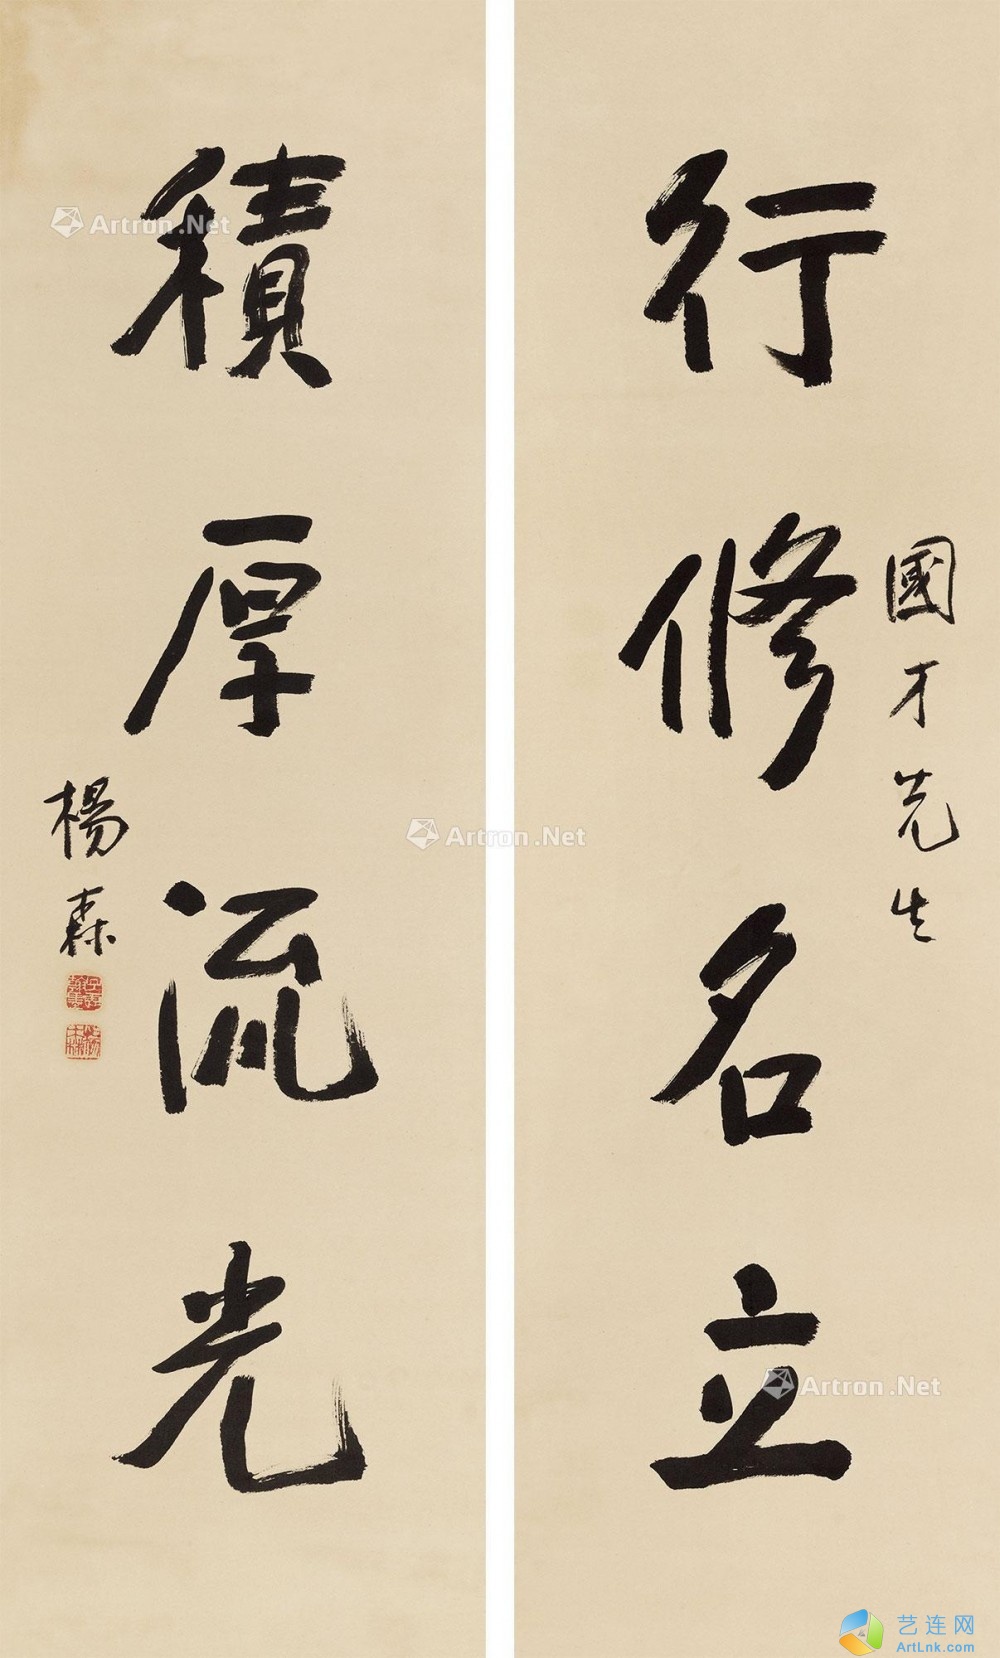 國才先生
行修名立
積厚流光
楊森
Artron.Net
Artron.Net
Artron.Net
艺连网
ArtLnk.com